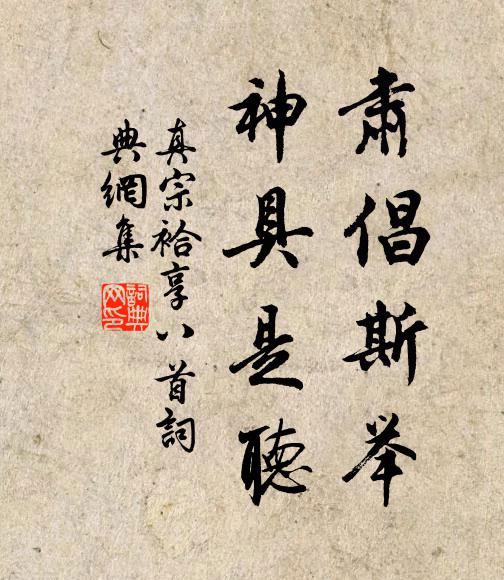 肅倡斯举
神具是聽
真宗袷享八首詞
典網集
詞典網印